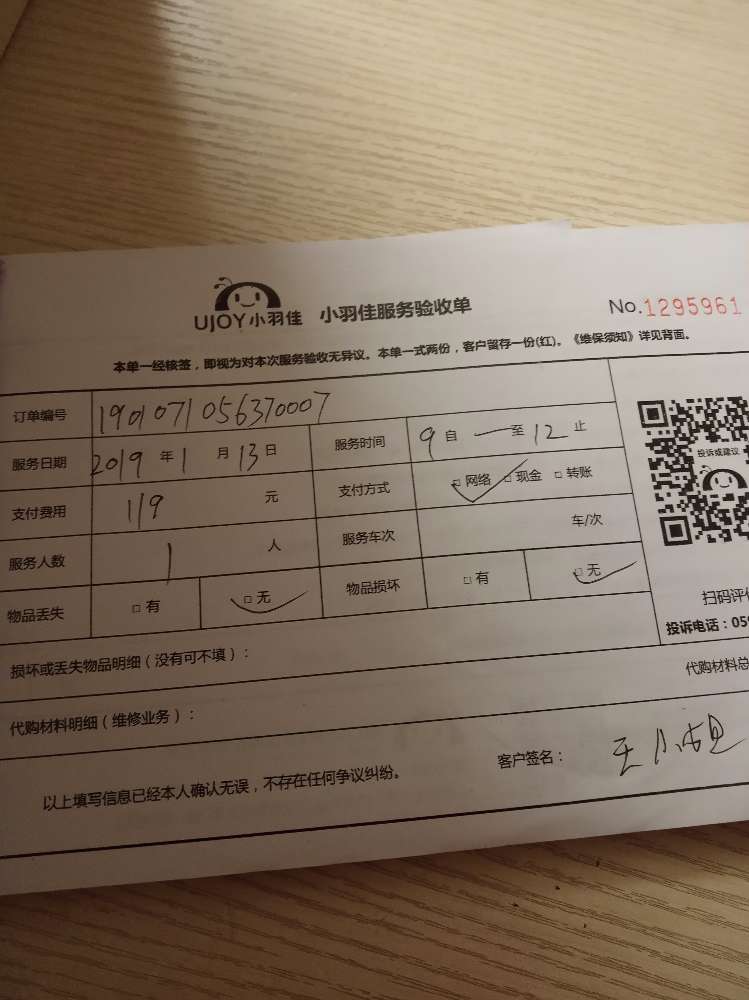 UJOY小羽佳 小羽佳服务验收单 No.1295961
本单一经核签，即视为对本次服务验收无异议。本单一式两份，客户留存一份(红)。《维保须知》详见背面。
订单编号 1901071056370007
服务日期 2019 年 1 月 13 日 服务时间 9 自 一 至 12 止
支付费用 119 元 支付方式 □ 网络 □ 现金 □ 转账
服务人数 1 人 服务车次 车/次
物品丢失 □ 有 □ 无 物品损坏 □ 有 □ 无
投诉或建议
扫码评价
投诉电话：059
损坏或丢失物品明细（没有可不填）：
代购材料明细（维修业务）： 代购材料总
以上填写信息已经本人确认无误，不存在任何争议纠纷。 客户签名：